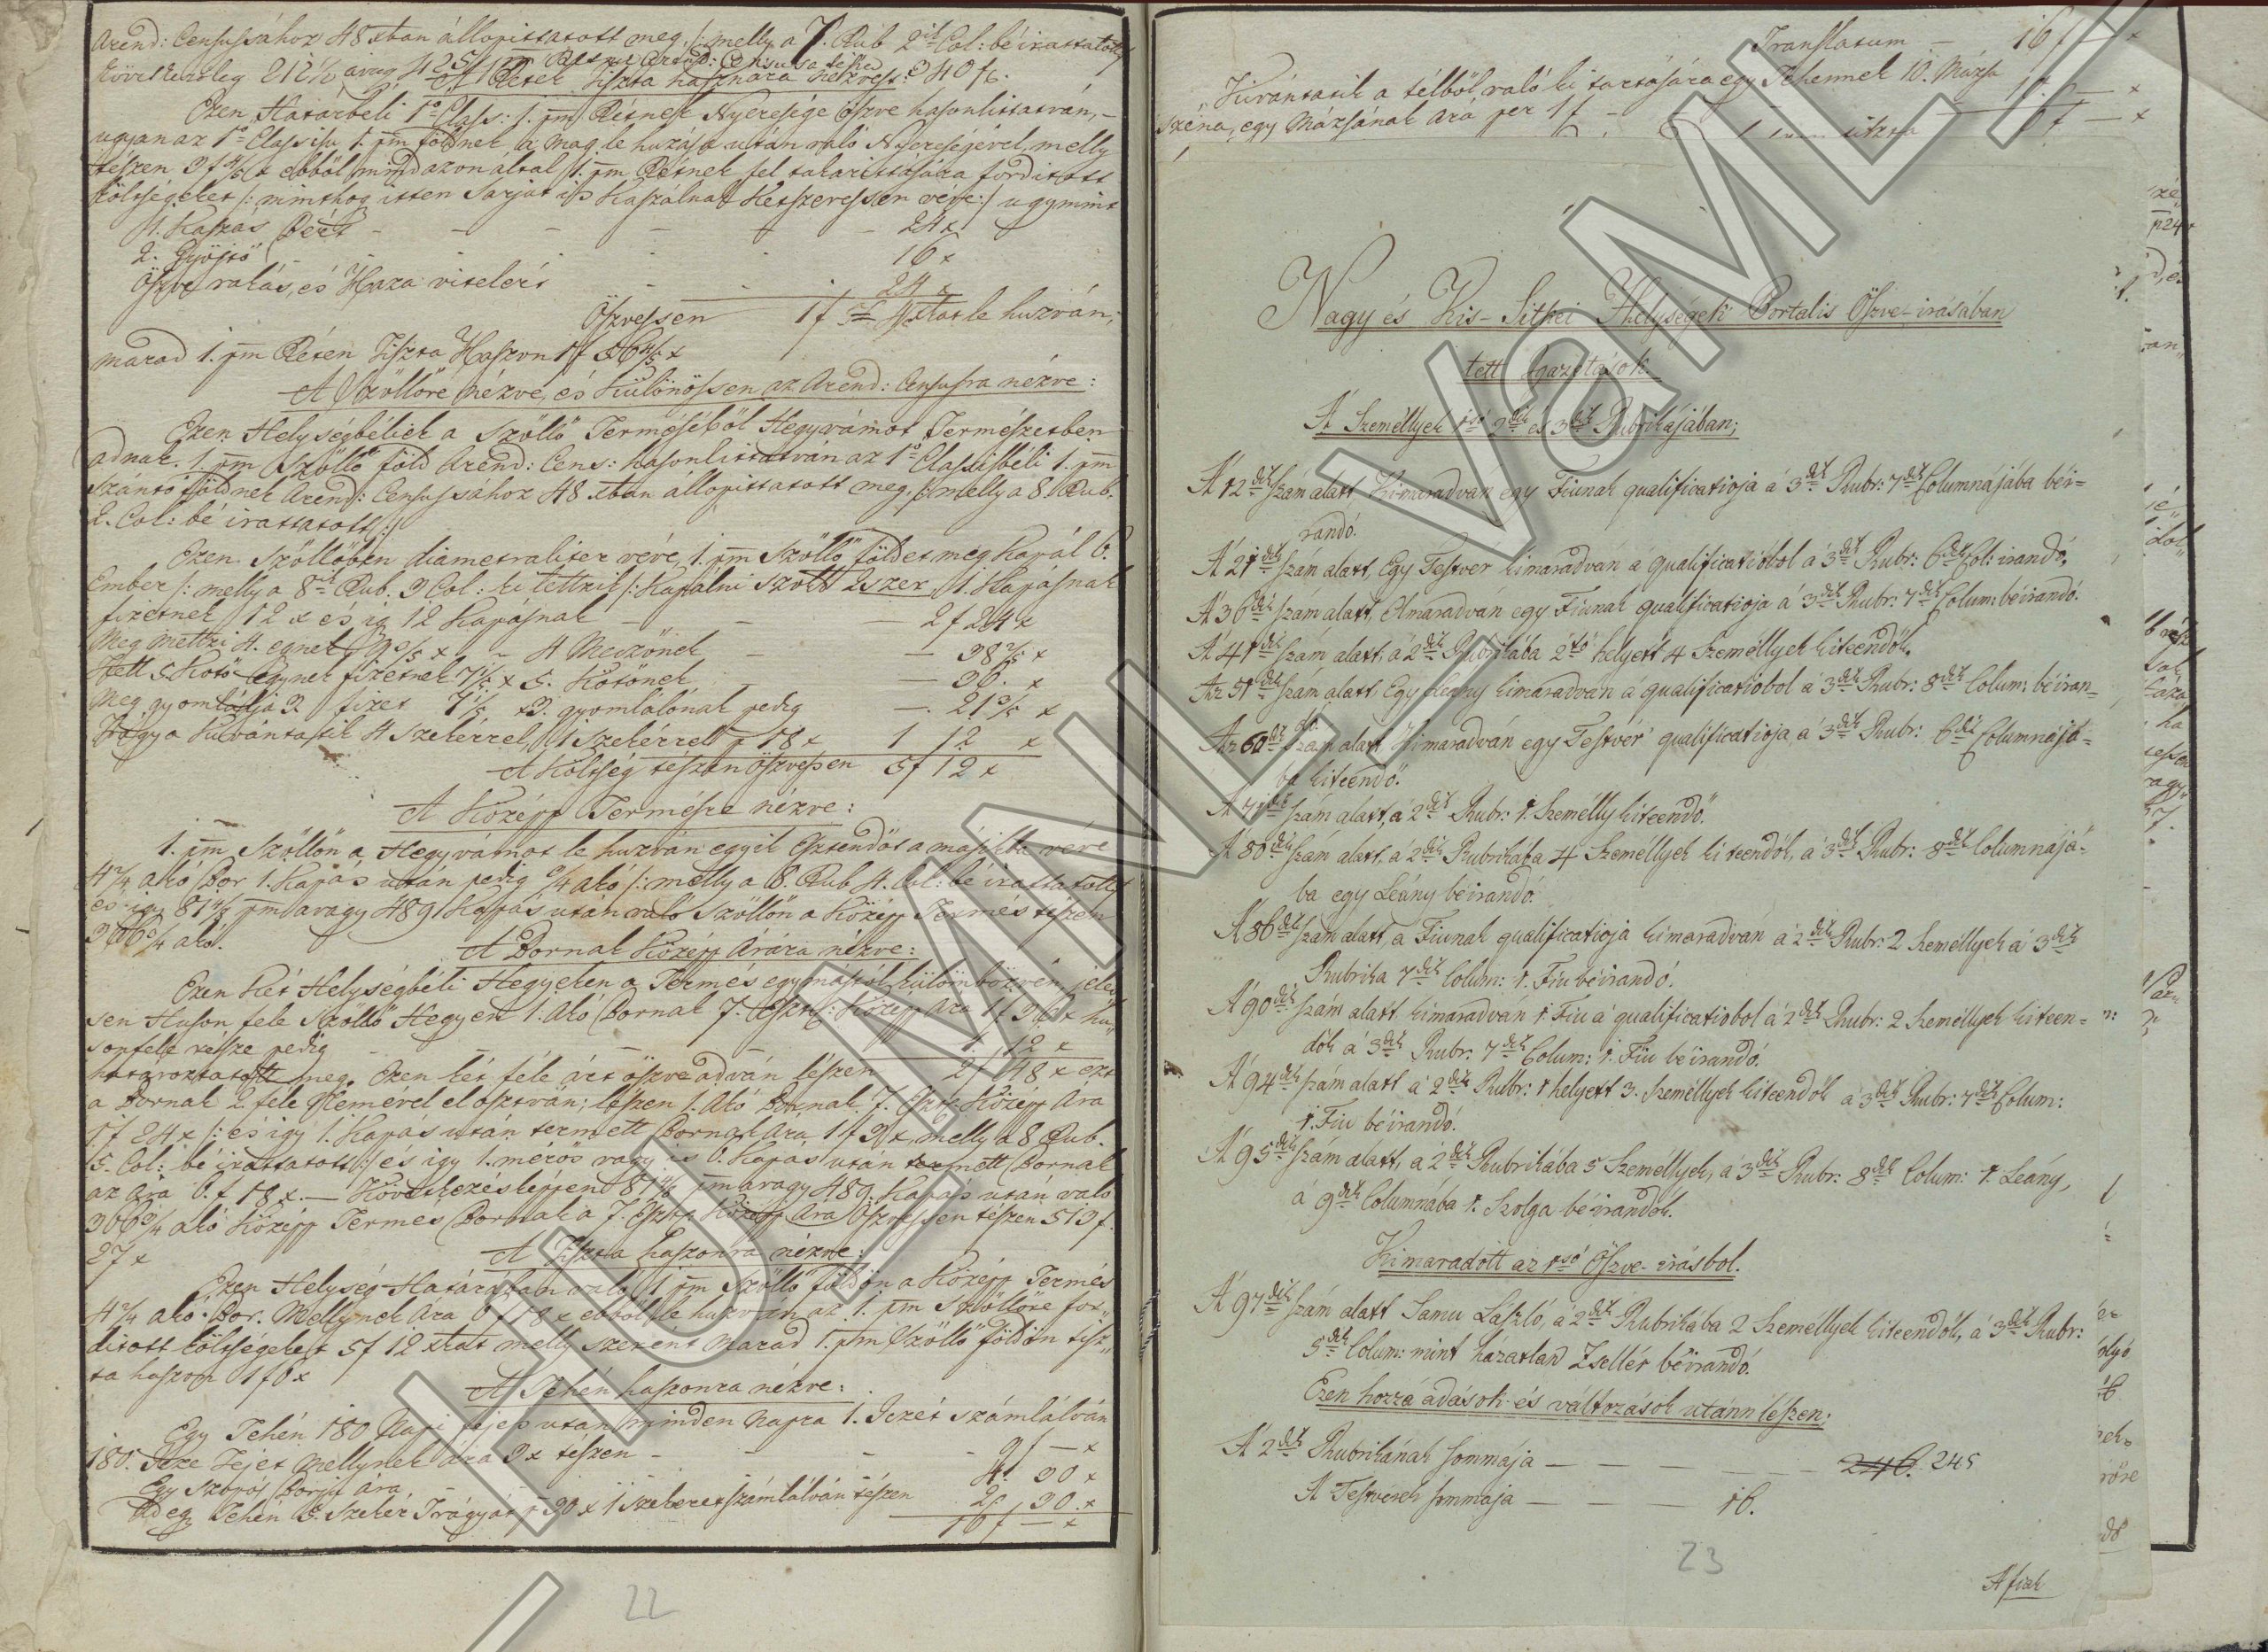 Arend: Censussához 48 xban állopittatott meg, /: melly a 7. Rub 2ik Col: béirattatott
következésleg 212½ avag 425 Rétnek Arend: Censussa tészen 340 f.
A Rétek tiszta hasznára nézve:
Ezen Határbéli 1ő Class: 1. pm Rétnek Nyeresége öszve hasonlittatván,
ugyan az 1ő Classisu 1. pm földnek a mag le huzása után való Nyereségével, melly
tészen 3 f x ebből mindazonáltal 1. pm Rétnek fel takarittására fordittott
költségeket /: minthog itten Sarjut is Kaszálnak Kétszeressen véve :/ ugymint
1. Kaszás Bért - - - - - 24 x
2. Gyöjtö - - - - 16 x
Öszve rakás, és Haza vitelért - - 24 x
Öszvessen 1 f 4 xtot le huzván,
marad 1. pm Réten Tiszta Haszon 1 f 56 4/5 x
A Szöllőre nézve, és Különössen az Arend: Censusra nézve:
Ezen Helységbéliek a Szöllö Terméséből Hegyvámot Természetben
adnak. 1. pm Szöllö föld Arend: Cens: hasonlittatván az 1ő Classisbéli 1. pm
szántó földnek Arend: Censussához 48 xban állopittatott meg. /: melly a 8. Rub.
2. Col: bé irattatott :/
Ezen Szöllöben diametraliter véve, 1. pm Szöllö földet meg Kapál 6.
Ember /: melly a 8ik Rub. 3 Col: ki tettzik /: Kapálni szokott 2szer 1. Kapásnak
fizetnek 12 x és ig 12 Kapásnak - - - 2 f 24 x
Meg mettzi 4. egnek 9 3/5 x - 4 Meczönek - - 38 2/5 x
Kell 5 Kötö Egynek fizetnek 7 1/5 x 5. Kötönek - - 36. x
Meg gyomlálja 3 fizet 7 1/5 x 3. gyomlálónak pedig - 21 3/5 x
Trágya Kivántatik 4 szekérrel, 1 szekérrel p 18 x 1 12 x
A Költség tészen öszvessen 5 f 12 x
A Középp Termésre nézve:
1. pm Szöllön a Hegyvámot le huzván egyik Esztendöt a másikba véve
4 2/4 akó Bor 1. Kapás után pedig 3/4 akó /: melly a 8. Rub. 4. Col: bé irattatott
és ig 81 4/8 pm avagy 489 Kapás után való Szöllön a Középp Termés tészen
366 3/4 akó.
A Bornak Középp Árára nézve:
Ezen két Helységbéli Hegyeken a Termés egymástól külömbözvén, jelessen
sen Huson fele Szöllö Hegyen 1. Akó Bornak 7. Eszt: Középp Ara 1 f 36 x hu-
sonfele része pedig - - - - 1. 12 x
határoztatott meg. Ezen két féle árt öszve adván lészen 2 f 48 x ezt
a Bornak 2 féle Nemével el osztván, lészen 1. Akó Bornak 7. Eszt: Középp Ára
1 f 24 x /: és igy 1. Kapás után termett Bornak ára 1 f 3 x, melly a 8 Rub.
5. Col: bé irattatott :/ és igy 1. mérös vagy is 6. Kapás után termett Bornak
az ára 6. f 18 x. — Következésképpen 81 4/8 pm avagy 489. Kapás után való
366 3/4 akó Középp Termés Bornak a 7. Eszt: Középp Ara Öszvessen tészen 513 f.
27 x
A Tiszta haszonra nézve:
Ezen Helység Határában való 1 pm Szöllö földön a Középp Termés
4 2/4 akó Bor. Mellynek ára 6 f 18 x ebből le huzván az 1. pm Szöllöre for-
ditott költségeket 5 f 12 xkat melly szerént marad 1. pm Szöllö földön tisz-
ta haszon 1 f 6 x
A Tehén haszonra nézve:
Egy Tehén 180 Napi fejés után minden Napra 1. Iczét számlálván
180. Icze Tejet mellynek ára 3 x tészen - - - 9 f — x
Egy szopós Borju ára - - - 4. 30 x
Ad eg Tehén 5. szekér Trágyát p 30 x 1 szekeret számlálván tészen 2. 30. x
16 f — x
22
Translatum — 16 f — x
Kivántatik a télből való ki tartására egy Tehennek 10. Mázsa
széna, egy Mázsának ára per 1 f - 10. — x
tiszta 6 f — x
Nagy és Kis-Sitkei Helységek Portalis Öszve-irásában
tett Igazítások
A Személlyek 1ső 2dik és 3dik Rubrikájában;
A 12dik szám alatt, Kimaradván egy Fiunak qualificatioja á 3dik Rubr: 7dik Columnájába béi-
randó.
A 21dik szám alatt, Egy Testvér kimaradván á qualificatióbol á 3dik Rubr: 6dik Col: irandó,
A 36dik szám alatt, Elmaradván egy Fiunak qualificatioja á 3dik Rubr: 7dik Colum: béirandó.
A 41dik szám alatt, á 2dik Rubrikába 2tő helyett 4 Személlyek kiteendők.
Az 51dik szám alatt, Egy Leány kimaradván á qualificatióbol á 3dik Rubr: 8dik Colum: béiran-
dó.
Az 60dik szám alatt Kimaradván egy Testvér qualificatioja, á 3dik Rubr: 6dik Columnájá-
ba kiteendő.
A 71dik szám alatt, á 2dik Rubr: 1. Személly kiteendő.
A 80dik szám alatt, á 2dik Rubrikába 4 Személlyek kiteendők, á 3dik Rubr: 8dik Columnájá-
ba egy Leány béirandó.
A 86dik szám alatt, a Fiunak qualificatioja kimaradván á 2dik Rubr: 2 Személlyek á 3dik
Rubrika 7dik Colum: 1. Fiu béirandó.
A 90dik szám alatt kimaradván 1. Fiu á qualificatiobol á 2dik Rubr: 2 Személlyek kiteen-
dők á 3dik Rubr: 7dik Colum: 1. Fiu béirandó.
A 94dik szám alatt á 2dik Rubr: 1 helyett 3. Személlyek kiteendők á 3dik Rubr: 7dik Colum:
1. Fiu béirandó.
A 95dik szám alatt, á 2dik Rubrikába 5 Személlyek, á 3dik Rubr: 8dik Colum: 1. Leány,
á 9dik Columnába 1. Szolga béirandók.
Kimaradott az 1ső Öszve-irásbol.
A 97dik szám alatt Samu László, á 2dik Rubrikába 2 Személlyek kiteendők, á 3dik Rubr:
5dik Colum: mint házatlan Zsellér béirandó.
Ezen hozzá adások és változások utánn lészen:
A 2dik Rubrikának Sommája — — — — 246. 245
A Testverek sommája — — — 16.
A fiak
23
HU_MNL_VaML_I